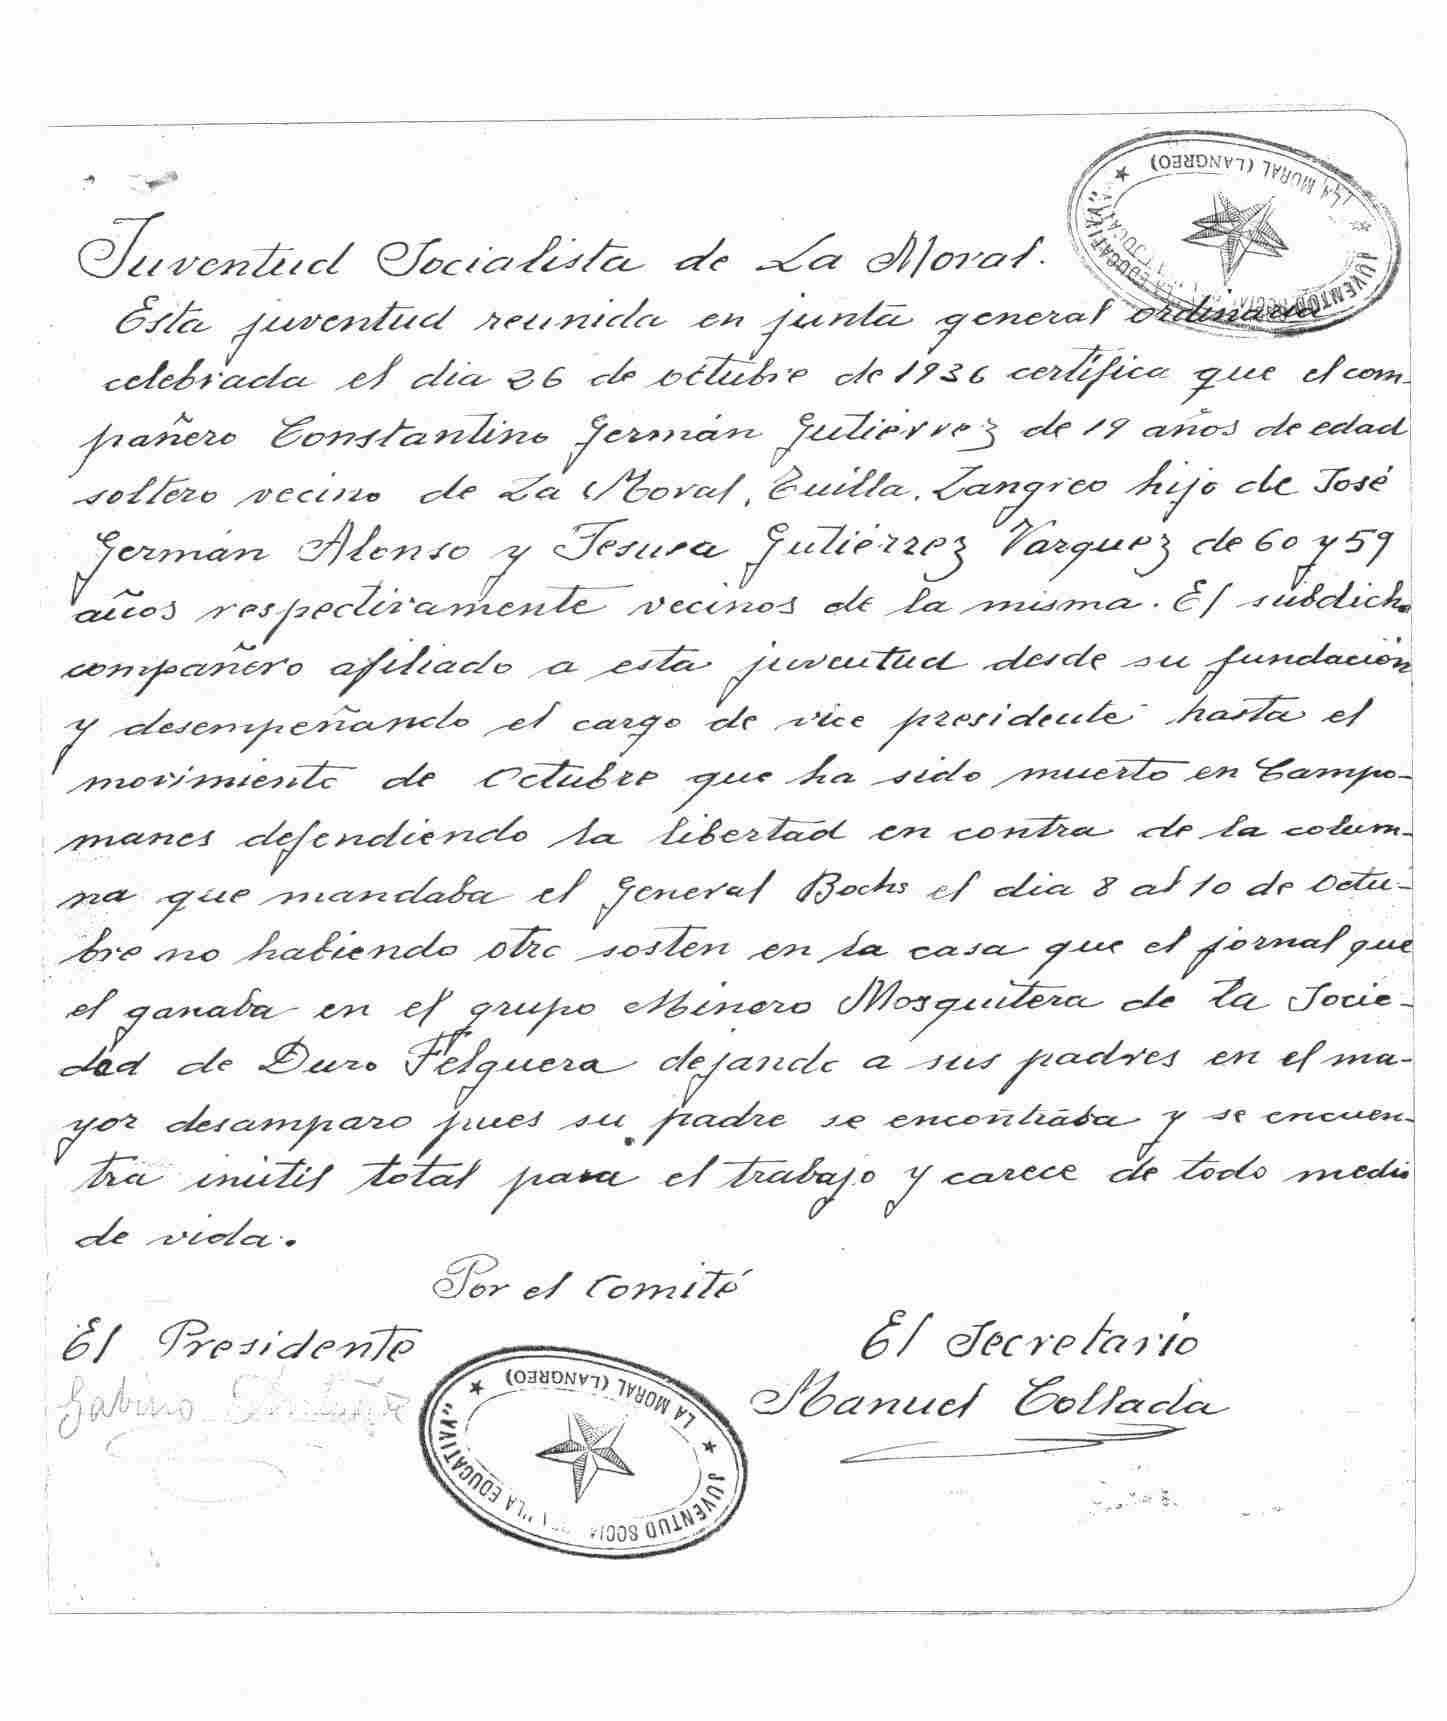 LA MORAL (LANGREO)
JUVENTUD SOCIA "LA EDUCATIVA"
Juventud Socialista de La Moral.
Esta juventud reunida en junta general ordinaria
celebrada el dia 26 de octubre de 1936 certifica que el com-
pañero Constantino Germán Gutiérrez de 19 años de edad
soltero vecino de La Moral, Tuilla, Langreo hijo de José
Germán Alonso y Jesusa Gutiérrez Varquez de 60 y 59
años respectivamente vecinos de la misma. El subdicho
compañero afiliado a esta juventud desde su fundación
y desempeñando el cargo de vice presidente hasta el
movimiento de Octubre que ha sido muerto en Campo-
manes defendiendo la libertad en contra de la colum-
na que mandaba el General Bochs el dia 8 al 10 de Octu-
bre no habiendo otro sosten en la casa que el jornal que
el ganaba en el grupo Minero Mosquitera de la Socie-
dad de Duro Felguera dejando a sus padres en el ma-
yor desamparo pues su padre se encontraba y se encuen-
tra inútil total para el trabajo y carece de todo medio
de vida.
Por el Comité
El Presidente El Secretario
Gabino Manuel Collada
LA MORAL (LANGREO)
JUVENTUD SOCIA "LA EDUCATIVA"